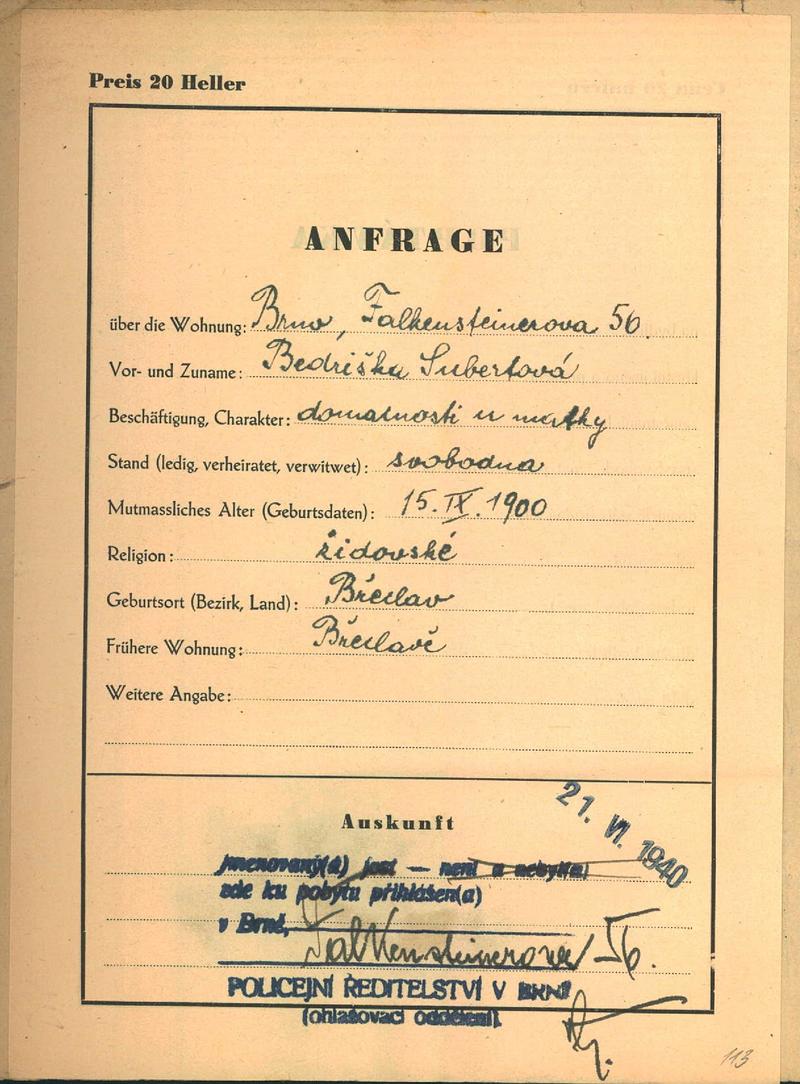 Preis 20 Heller
ANFRAGE
über die Wohnung: Brno, Falkensteinerova 56.
Vor- und Zuname: Bedriška Subertová
Beschäftigung, Charakter: domácnosti u matky
Stand (ledig, verheiratet, verwitwet): svobodna
Mutmassliches Alter (Geburtsdaten): 15. IX. 1900
Religion: židovské
Geburtsort (Bezirk, Land): Břeclav
Frühere Wohnung: Břeclavě
Weitere Angabe:
Auskunft
21. VI. 1940
Jmenovaný(á) jest — není a nebyl(a)
zde ku pobytu přihlášen(a)
v Brně,
Falkensteinerova 56.
POLICEJNÍ ŘEDITELSTVÍ V BRNĚ
(ohlašovací oddělení).
113